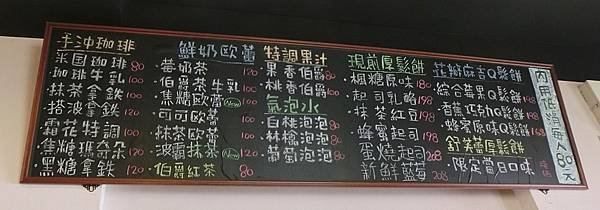 手沖珈琲
米国珈琲 80
珈琲牛乳 100
抹茶拿鐵 120
搭波拿鐵 120
霜花特調 100
焦糖瑪奇朵
黑糖拿鐵 120
鮮奶歐蕾
·鴛鴦奶茶 120
·伯爵茶牛乳 100
·焦糖歐蕾 New
·可可歐蕾 100
·抹茶歐蕾 100
·波霸抹茶 New 120
·伯爵紅茶 80
特調果汁
·果香伯爵 80
·桃香伯爵 100
氣泡水
·白桃泡泡 80
·林檎泡泡 80
·葡萄泡泡 80
現煎厚鬆餅
·楓糖原味 180
·起司乳酪 198
·抹茶紅豆 198
·蜂蜜起司 198
·蛋燒起司 208
·新鮮藍莓 208
花瓣麻吉Q鬆餅
·綜合苹果Q鬆餅 168
·香蕉巧克力Q鬆餅 168
·蜂蜜原味Q鬆餅 168
舒芙蕾厚鬆餅
·限定當日口味
內用低消每人80元